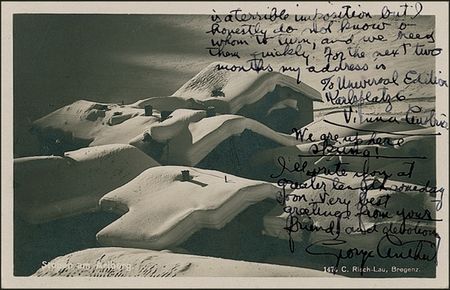 is a terrible imposition but I
honestly do not know to
whom to turn, and we need
them quickly. For the next two
months my address is
c/o Universal Edition
Karlsplatz 6
Vienna Austria
We are up here
skiing!
I'll write you at
greater length someday
soon. Very best
greetings from your
friend and devotion
George Antheil
147. C. Risch-Lau, Bregenz.